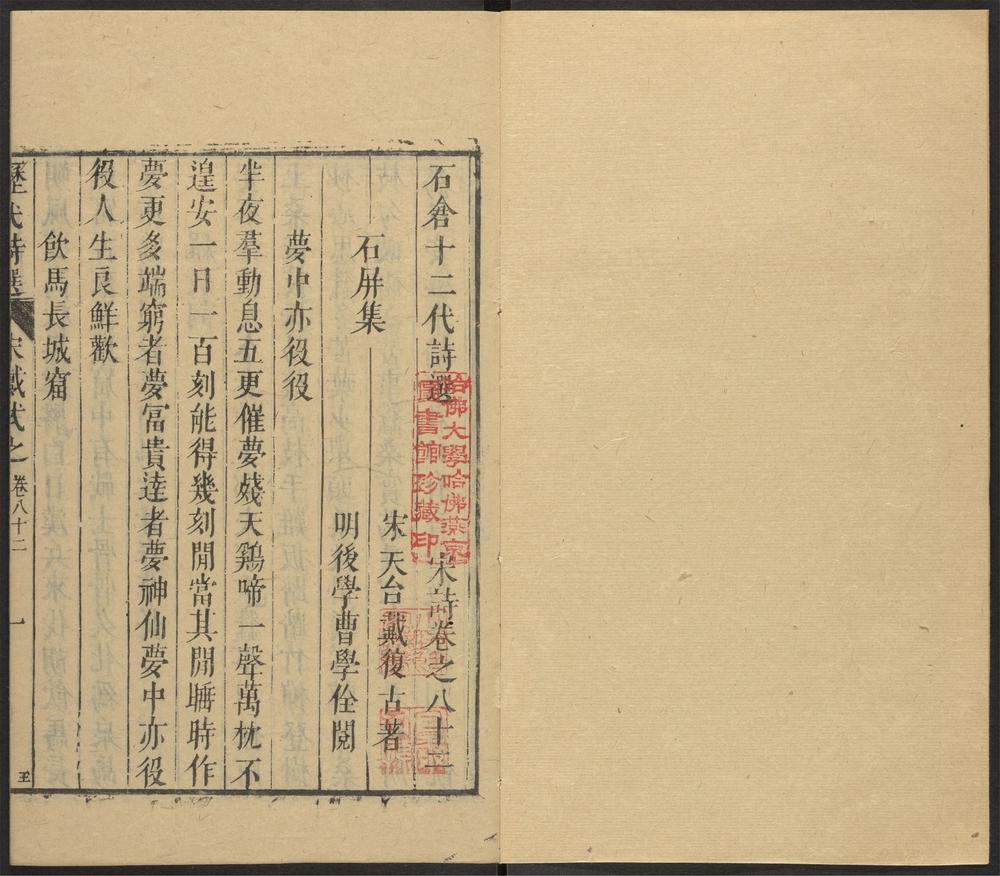 石倉十二代詩選 宋詩卷之八十二
宋天台戴復古著
石屏集
明後學曹學佺閱
夢中亦役役
半夜羣動息五更催夢殘天鷄啼一聲萬枕不
遑安一日一百刻能得幾刻閒當其閒睡時作
夢更多端窮者夢冨貴達者夢神仙夢中亦役
役人生良鮮歡
飲馬長城窟
歷代詩選 宋戴式之 卷八十二 一
王
哈佛大學哈佛燕京
圖書館珍藏印